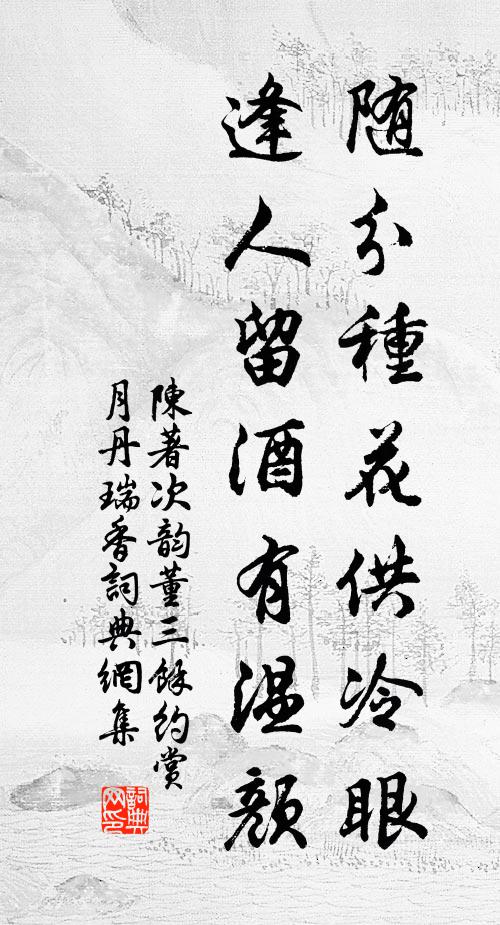 随分種花供冷眼
逢人留酒有温顔
陳著次韵董三餘約賞
月丹瑞香詞典網集
詞典
网印